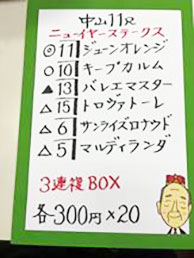 中山11R
ニューイヤーステークス
◎11 ジューンオレンジ
○10 キープカルム
▲13 バレエマスター
△15 トロヴァトーレ
△6 サンライズロナウド
△5 マルディランダ
3連複BOX
各300円×20